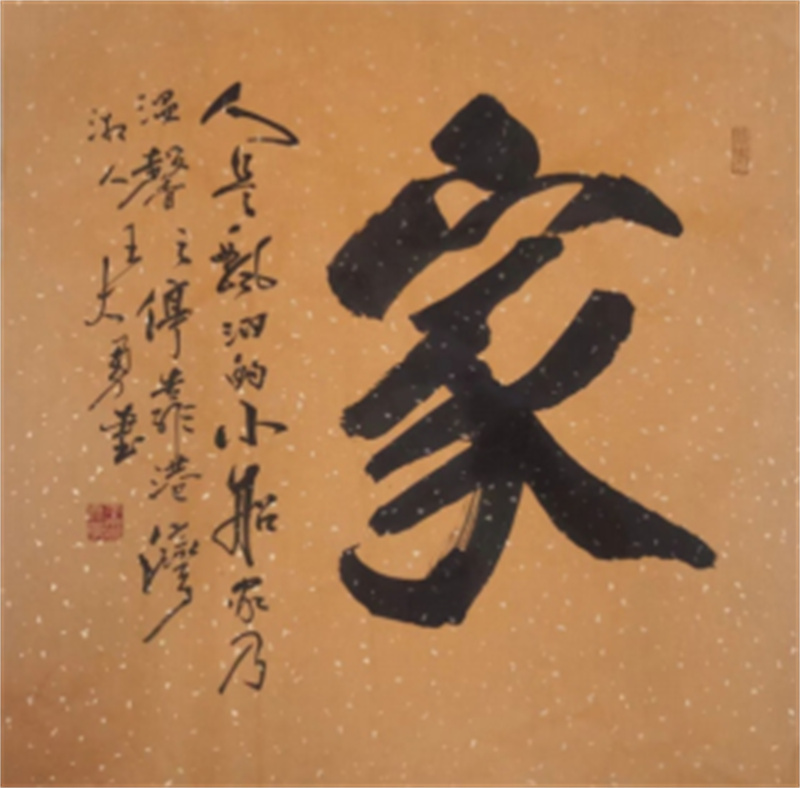 家
人是飘泊的小船家乃
温馨之停靠港湾
湘人王大勇书